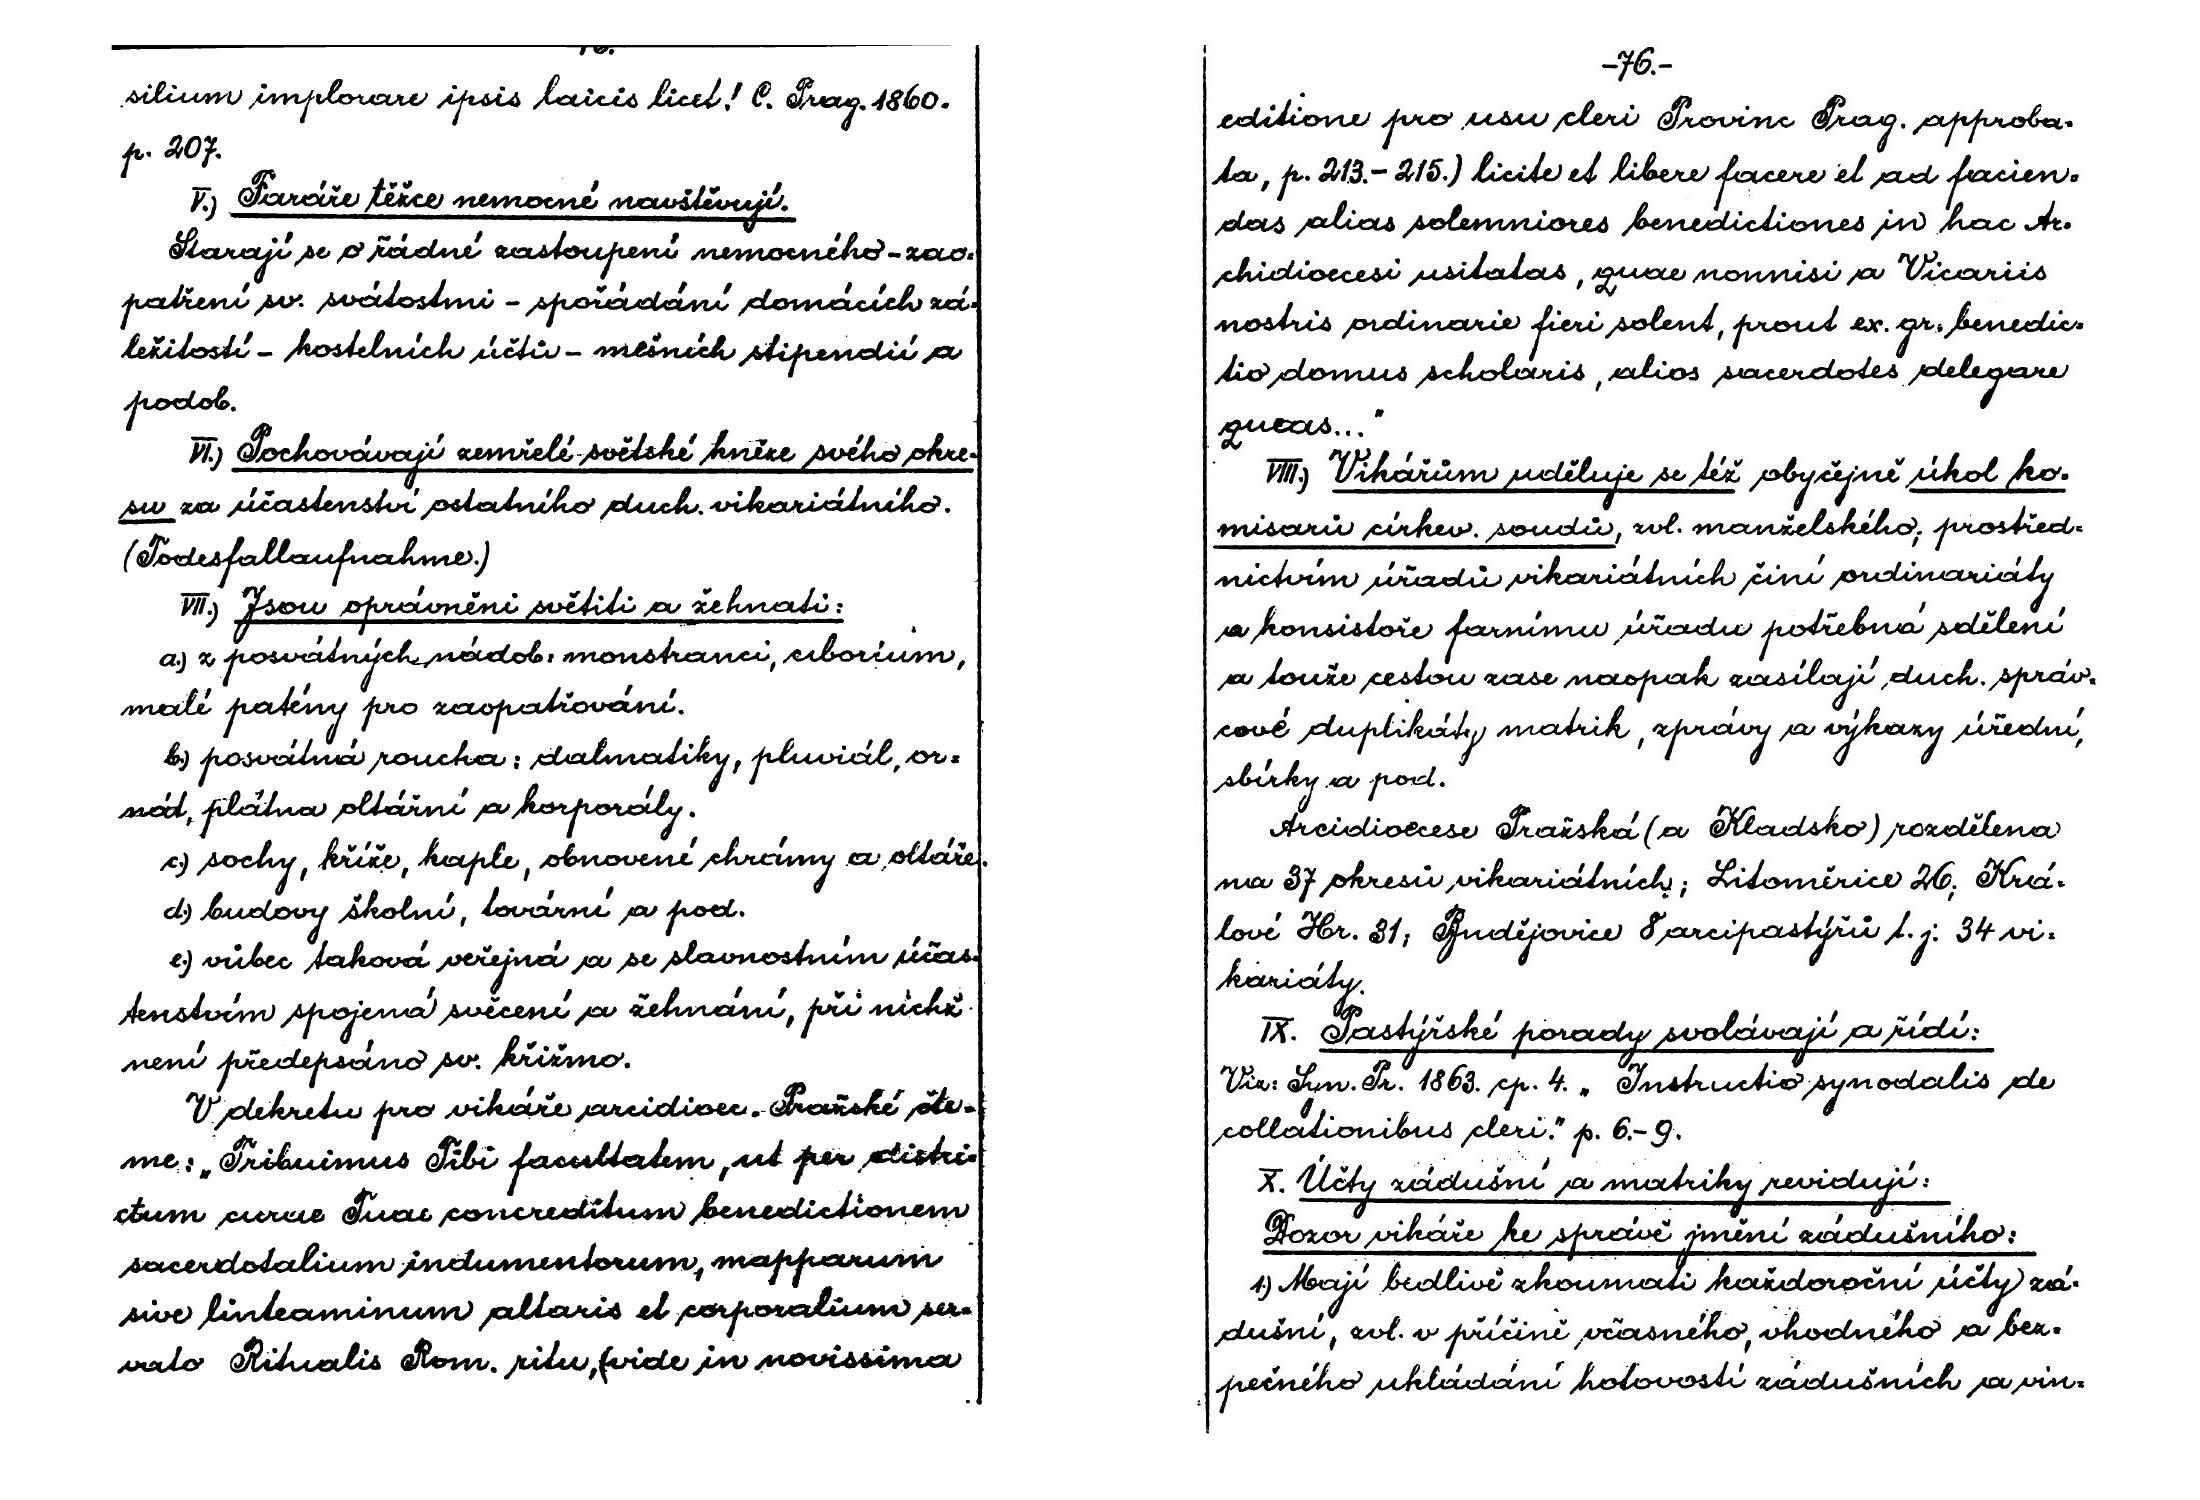 silium implorare ipsis laicis licet! C. Prag. 1860.
p. 207.
V.) Faráře těžce nemocné navštěvují.
Starají se o řádné zastoupení nemocného – zao-
patření sv. svátostmi – spořádání domácích zá-
ležitostí – kostelních účtů – mešních stipendií a
podob.
VI.) Pochovávají zemřelé světské kněze svého okre-
su za účastenství ostatního duch. vikariátního.
(Todesfallaufnahme.)
VII.) Jsou oprávněni světiti a žehnati:
a.) z posvátných nádob: monstranci, ciborium,
malé patény pro zaopatřování.
b.) posvátná roucha: dalmatiky, pluviál, or-
nát, plátna oltářní a korporály.
c.) sochy, kříže, kaple, obnovené chrámy a oltáře.
d.) budovy školní, tovární a pod.
e.) vůbec taková veřejná a se slavnostním účas-
tenstvím spojená svěcení a žehnání, při nichž
není předepsáno sv. křižmo.
V dekretu pro vikáře arcidioec. Pražské čte-
me: „Tribuimus Tibi facultatem, ut per distri-
ctum curae Tuae concreditum benedictionem
sacerdotalium indumentorum, mapparum
sive linteaminum altaris et corporalium ser-
vato Ritualis Rom. ritu, (vide in novissima
-76.-
editione pro usu cleri Provinc Prag. approba-
ta, p. 213.– 215.) licite et libere facere et ad facien-
das alias solemniores benedictiones in hac Ar-
chidioecesi usitatas, quae nonnisi a Vicariis
nostris ordinarie fieri solent, prout ex. gr. benedic-
tio domus scholaris, alios sacerdotes delegare
queas..."
VIII.) Vikářům uděluje se též obyčejně úkol ko-
misarů církev. soudů, zvl. manželského; prostřed-
nictvím úřadů vikariátních činí ordinariáty
a konsistoře farnímu úřadu potřebná sdělení
a touže cestou zase naopak zasílají duch. správ-
cové duplikáty matrik, zprávy a výkazy úřední,
sbírky a pod.
Arcidioecese Pražská (a Kladsko) rozdělena
na 37 okresů vikariátních; Litoměrice 26; Krá-
lové Hr. 31; Budějovice 8 arcipastýřů t. j. 34 vi-
kariáty.
IX. Pastýřské porady svolávají a řídí:
Viz: Syn. Pr. 1863. cp. 4. „Instructio synodalis de
collationibus cleri." p. 6.– 9.
X. Účty zádušní a matriky revidují:
Dozor vikáře ke správě jmění zádušního:
1.) Mají bedlivě zkoumati každoroční účty zá-
dušní, zvl. v příčině včasného, vhodného a bez-
pečného ukládání hotovostí zádušních a vin-